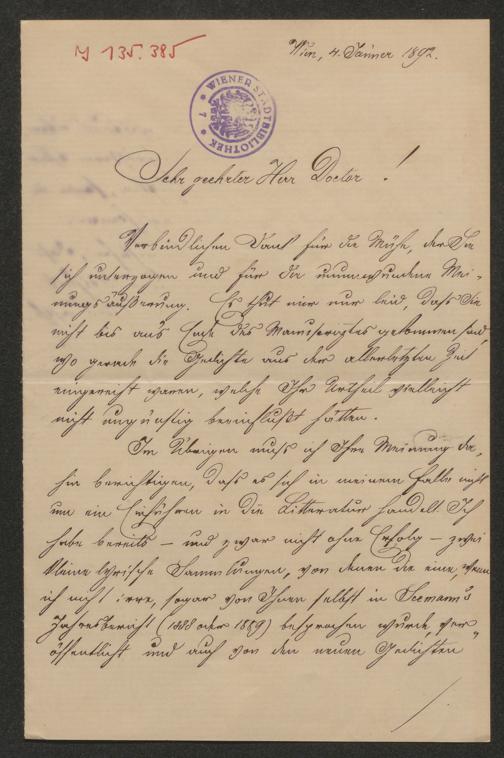 J 135.385
Wien, 4. Jänner 1892.
WIENER STADTBIBLIOTHEK
* 7 *
Sehr geehrter Herr Doctor!
Verbindlichen Dank für die Mühe, der Sie
sich unterzogen und für die unumwundene Mei-
nungsäußerung. Es thut mir nur leid, daß Sie
nicht bis an's Ende des Manuscriptes gekommen sind,
wo gerade die Gedichte aus der allerletzten Zeit
eingereiht waren, welche Ihr Urtheil vielleicht
nicht ungünstig beeinflußt hätten.
Im Übrigen muß ich Ihre Meinung da-
hin berichtigen, daß es sich in meinem Falle nicht
um ein Einführen in die Litteratur handelt. Ich
habe bereits – und zwar nicht ohne Erfolg – zwei
kleine lyrische Sammlungen, von denen die eine, wenn
ich nicht irre, sogar von Ihnen selbst in Seemann's
Jahresbericht (1888 oder 1889) besprochen wurde, ver-
öffentlicht und auch von den neuen Gedichten